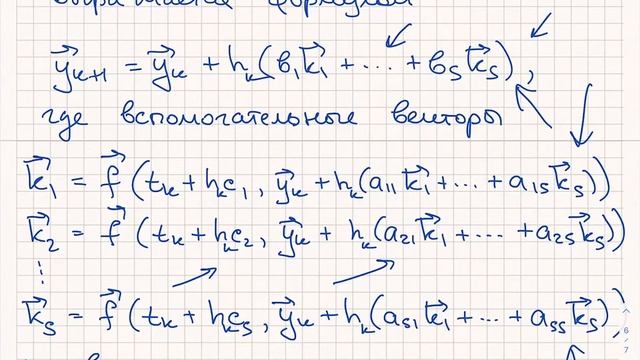 выражается формулой
y⃗ₖ₊₁ = y⃗ₖ + hₖ(b₁k⃗₁ + ... + bₛk⃗ₛ),
где вспомогательные векторы
k⃗₁ = f⃗(tₖ + hₖc₁, y⃗ₖ + hₖ(a₁₁k⃗₁ + ... + a₁ₛk⃗ₛ))
k⃗₂ = f⃗(tₖ + hₖc₂, y⃗ₖ + hₖ(a₂₁k⃗₁ + ... + a₂ₛk⃗ₛ))
⋮
k⃗ₛ = f⃗(tₖ + hₖcₛ, y⃗ₖ + hₖ(aₛ₁k⃗₁ + ... + aₛₛk⃗ₛ)),
6 / 7